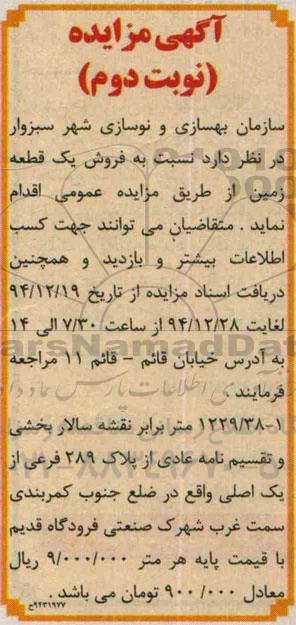 آگهی مزایده
(نوبت دوم)
سازمان بهسازی و نوسازی شهر سبزوار
در نظر دارد نسبت به فروش یک قطعه
زمین از طریق مزایده عمومی اقدام
نماید . متقاضیان می توانند جهت کسب
اطلاعات بیشتر و بازدید و همچنین
دریافت اسناد مزایده از تاریخ ۹۴/۱۲/۱۹
لغایت ۹۴/۱۲/۲۸ از ساعت ۷/۳۰ الی ۱۴
به آدرس خیابان قائم – قائم ۱۱ مراجعه
فرمایند .
۱-۱۲۲۹/۳۸ متر برابر نقشه سالار بخشی
و تقسیم نامه عادی از پلاک ۲۸۹ فرعی از
یک اصلی واقع در ضلع جنوب کمربندی
سمت غرب شهرک صنعتی فرودگاه قدیم
با قیمت پایه هر متر ۹/۰۰۰/۰۰۰ ریال
معادل ۹۰۰/۰۰۰ تومان می باشد .
۹۴۳۱۹۷۷ح